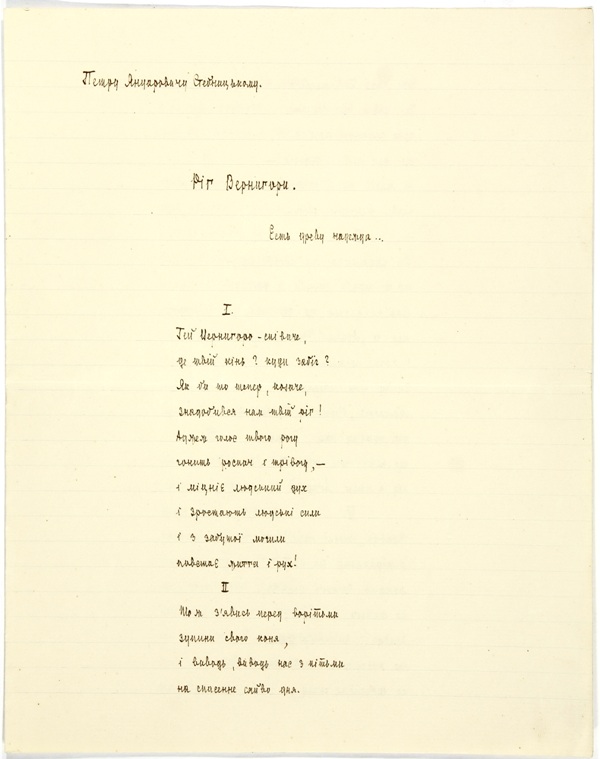 Петру Януаровичу Стебницькому.
Ріг Вернигори.
Есть древу надежда...
I.
Гей Вернигоро - співаче,
де твій кінь? куди забіг?
Як би то тепер, козаче,
знадобився нам твій ріг!
Аджеж голос твого рогу
гонить роспач і трівогу, —
і міцніє людський дух
і зростають людські сили
і з забутої могили
повстає життя і рух!
II
Що ж з'явись перед ворітьми
зупини свого коня,
і виводь, виводь нас з пітьми
на спасенне сяйво дня.